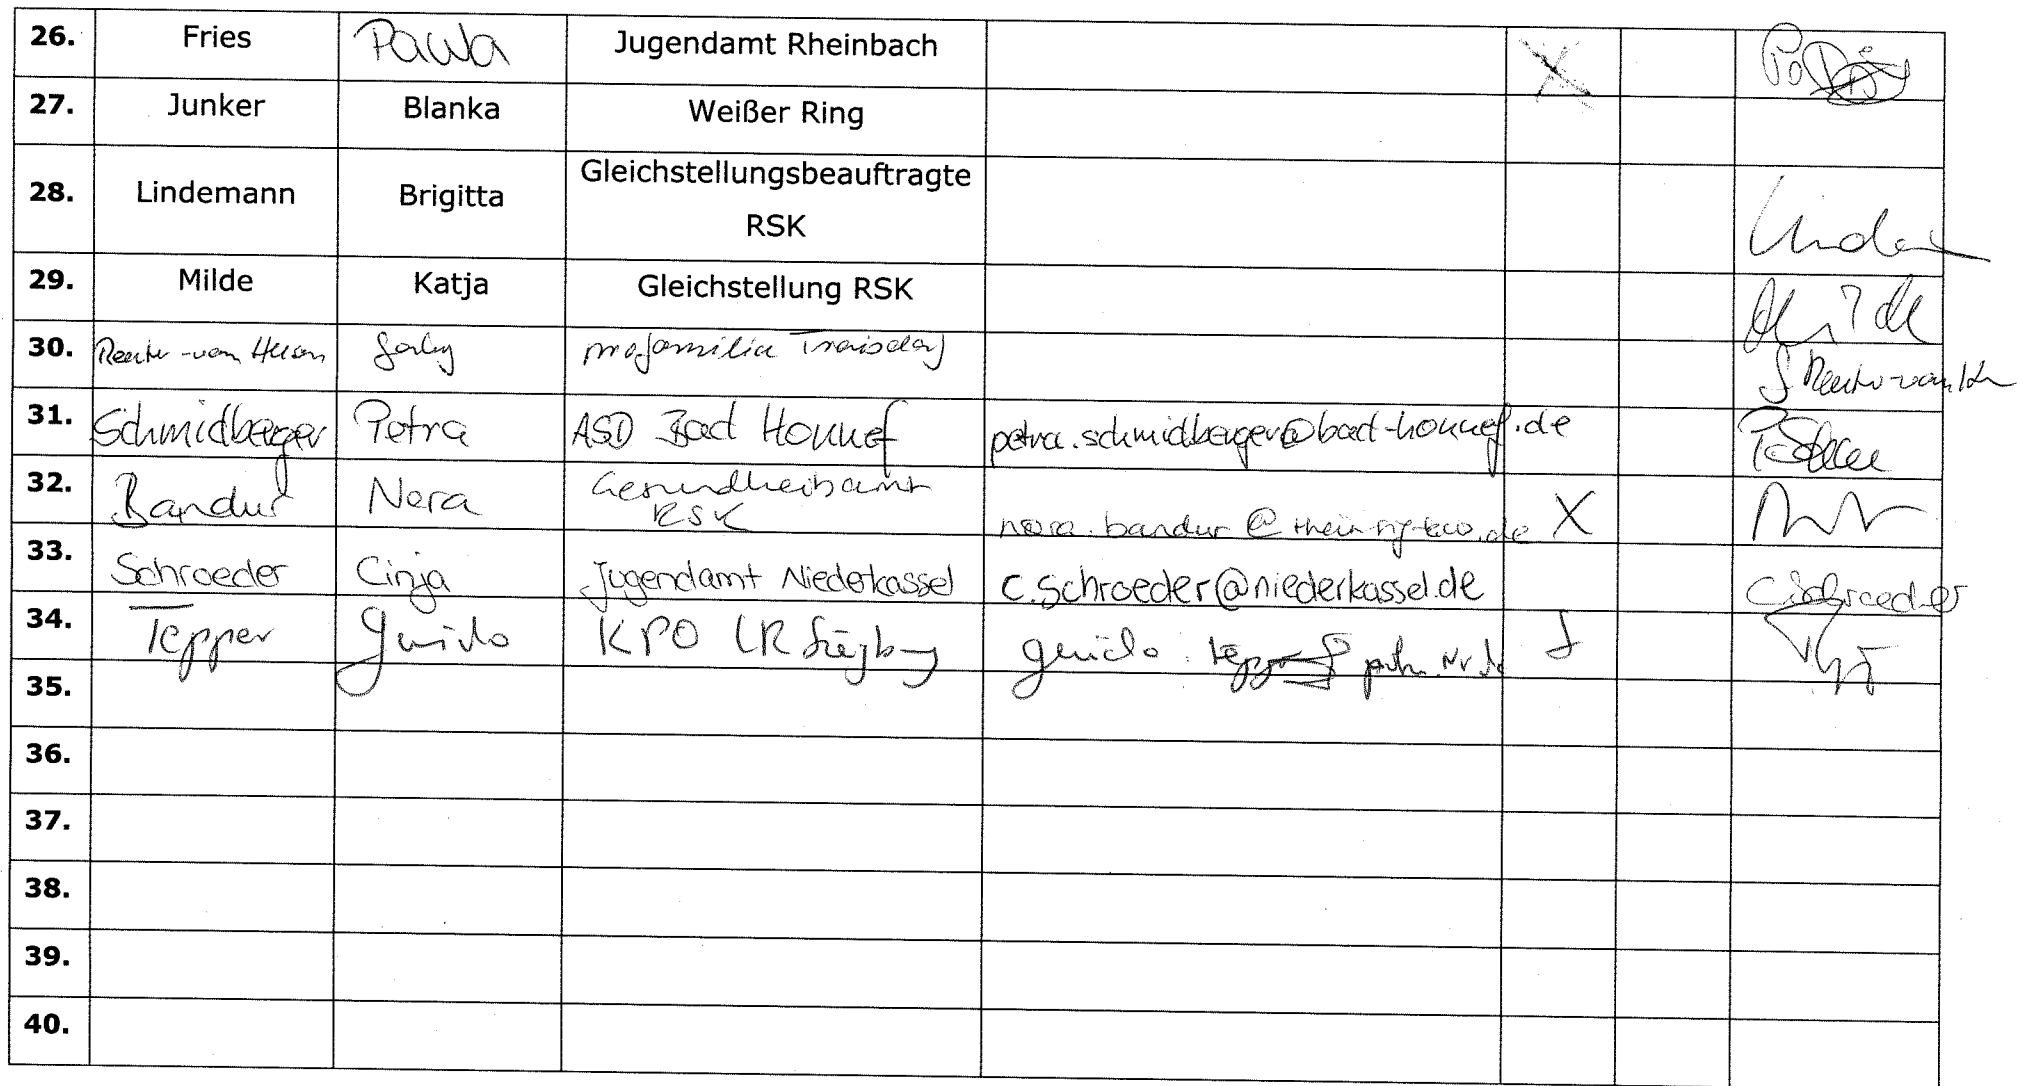 26. Fries Paula Jugendamt Rheinbach X
27. Junker Blanka Weißer Ring
28. Lindemann Brigitta Gleichstellungsbeauftragte
RSK
29. Milde Katja Gleichstellung RSK Milde
30. profamilia Troisdorf
31. Schmidberger Petra ASD Bad Honnef petra.schmidberger@bad-honnef.de
32. Bandur Nora Gesundheitsamt
RSK nora.bandur@rhein-sieg-kreis.de X
33. Schroeder Cinja Jugendamt Niederkassel c.schroeder@niederkassel.de C.Schroeder
34. Tepper Guido KPO LR Siegburg
35.
36.
37.
38.
39.
40.